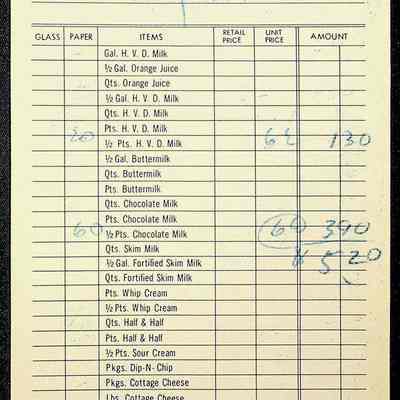 GLASS PAPER ITEMS RETAIL PRICE UNIT PRICE AMOUNT
Gal. H. V. D. Milk
½ Gal. Orange Juice
Qts. Orange Juice
½ Gal. H. V. D. Milk
Qts. H. V. D. Milk
Pts. H. V. D. Milk
20 ½ Pts. H. V. D. Milk 6½ 130
½ Gal. Buttermilk
Qts. Buttermilk
Pts. Buttermilk
Qts. Chocolate Milk
Pts. Chocolate Milk
60 ½ Pts. Chocolate Milk 6½ 390
Qts. Skim Milk
½ Gal. Fortified Skim Milk $ 5 20
Qts. Fortified Skim Milk
Pts. Whip Cream
½ Pts. Whip Cream
Qts. Half & Half
Pts. Half & Half
½ Pts. Sour Cream
Pkgs. Dip-N- Chip
Pkgs. Cottage Cheese
Lbs. Cottage Cheese